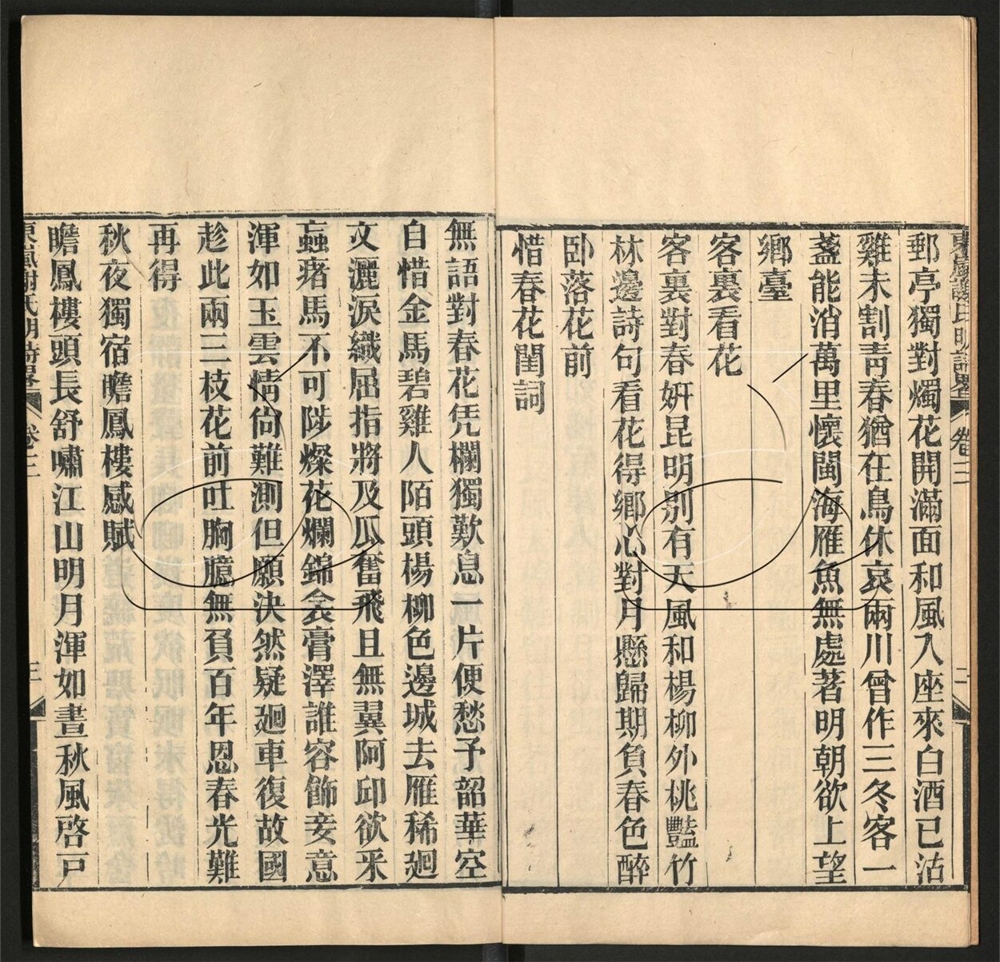 東嵐謝氏明詩畧 卷三 二
郵亭獨對燭花開滿面和風入座來白酒已沽
雞未割靑春猶在鳥休哀兩川曾作三冬客一
盞能消萬里懷閩海雁魚無處著明朝欲上望
鄉臺
客裏看花
客裏對春妍昆明別有天風和楊柳外桃豔竹
林邊詩句看花得鄉心對月懸歸期負春色醉
卧落花前
惜春花閨詞
無語對春花凭欄獨歎息一片便愁予韶華空
自惜金馬碧雞人陌頭楊柳色邊城去雁稀廻
文灑淚織屈指將及瓜奮飛且無翼阿邱欲釆
蝱瘏馬不可陟燦花爛錦衾膏澤誰容飾妾意
渾如玉雲情尙難測但願決然疑廻車復故國
趁此兩三枝花前吐胸臆無負百年恩春光難
再得
秋夜獨宿瞻鳳樓感賦
瞻鳳樓頭長舒嘯江山明月渾如晝秋風啓戸
東嵐謝氏明詩畧 卷三 三